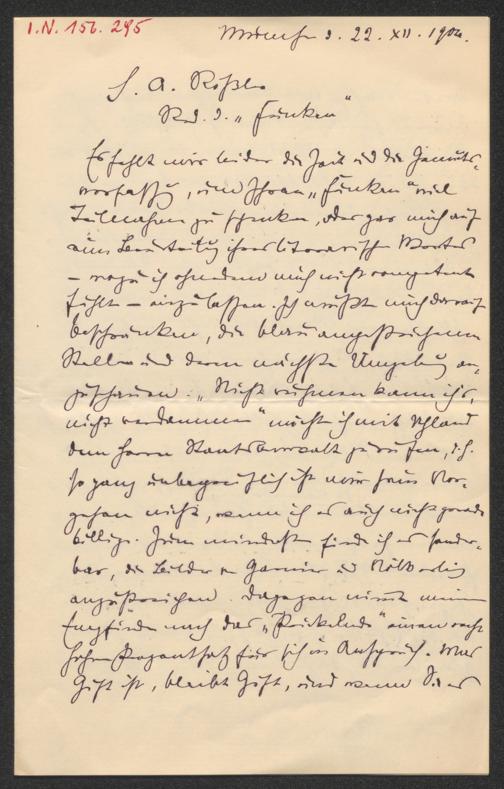 I.N. 156.295
München d. 22. XII. 1904.
S. A. Rößler
Red. d. „Funken"
Es fehlt mir leider die Zeit und die Gemüts-
verfassung, um Ihren „Funken" viel
Teilnahme zu schenken, oder gar mich auf
eine Beurteilung ihres literarischen Wertes
– wozu ich ohnedem mich nicht competent
fühle – einzulassen. Ich mußte mich darauf
beschränken, die blau angestrichenen
Stellen und deren nächste Umgebung an-
zuschauen. „Nicht rühmen kann ich's,
nicht verdammen" möchte ich mit Uhland
dem Herrn Staatsanwalt zurufen, d.h.
so ganz unbegreiflich ist mir sein Vor-
gehen nicht, wenn ich es auch nicht gerade
billige. Zum mindesten finde ich es sonder-
bar, die Bilder v. Garnier und Rölberling
anzustreichen. Dagegen nimmt meinem
Empfinden nach das „Prickelnde" einen recht
hohen Prozentsatz für sich in Anspruch. Was
Gift ist, bleibt Gift, und wenn Sie es